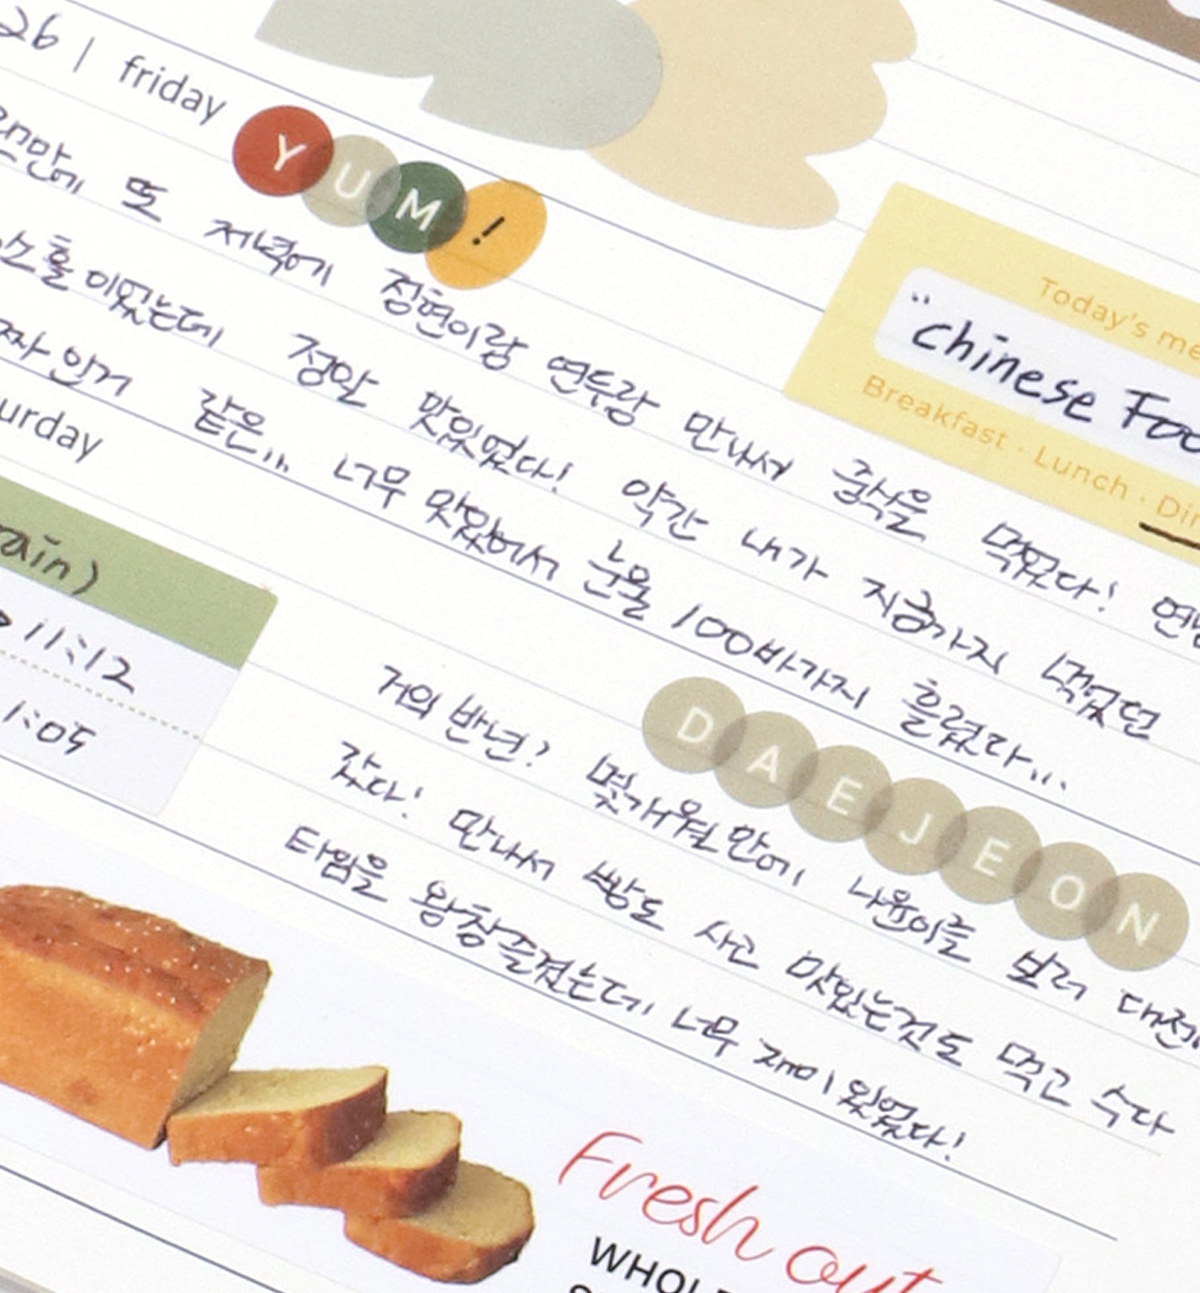 26 | friday
YUM!
Today's me
"Chinese Foo
Breakfast · Lunch · Din
또 저녁에 정현이랑 연두랑 만나서 중식을 먹었다!
정말 맛있었다! 약간 내가 지금까지 먹었던
같은... 너무 맛있어서 눈물 100바가지 흘렸다...
urday
DAEJEON
rain)
11:12
1:05
거의 반년? 몇개월만에 나윤이를 보러
갔다! 만나서 빵도 사고 맛있는것도 먹고 수다
타임을 왕창 즐겼는데 너무 재미있었다!
Fresh out
WHOL